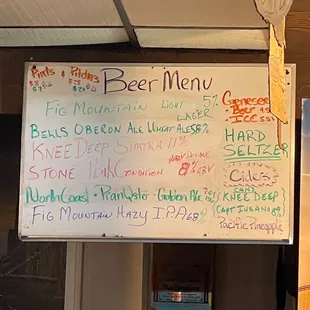 Pints & Pitchers
Beer Menu
Fig Mountain Light Lager 5%
Bells Oberon Ale Wheat Ale 5.8%
Knee Deep Simtra 11%
Stone Condition ABV
North Coast · Pranqster · Golden Ale
Fig Mountain Hazy I.P.A
Genesee
Beer
ICC
HARD
SELTZER
Cider
CANS
KNEE DEEP
Pacific Pineapple